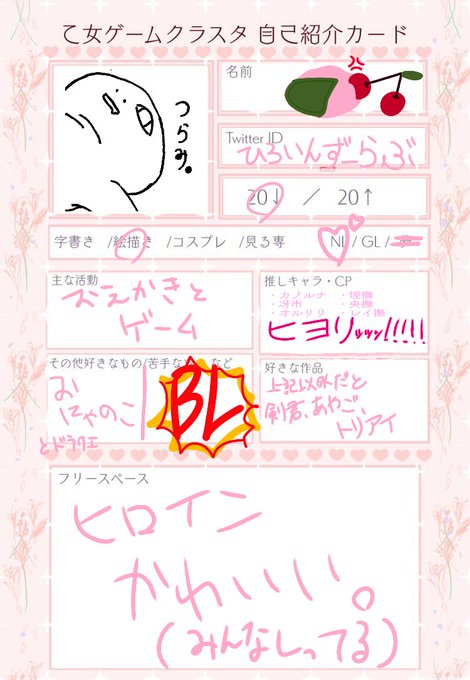 乙女ゲームクラスタ 自己紹介カード
つらみ。
名前
Twitter ID
ひろいんずーらぶ
20↓ / 20↑
字書き /絵描き /コスプレ /見る専
NL / GL /
主な活動
おえかきと
ゲーム
推しキャラ・CP
・カノルナ ・理撫
・冴市 ・央撫
・オルリリ ・レイ撫
ヒヨリッッッ!!!!!
その他好きなもの/苦手な など
お
にゃのこ
とドラクエ
BL
好きな作品
上記以外だと
剣君、あやご、
トリアイ
フリースペース
ヒロイン
かわいい。
(みんなしってる)